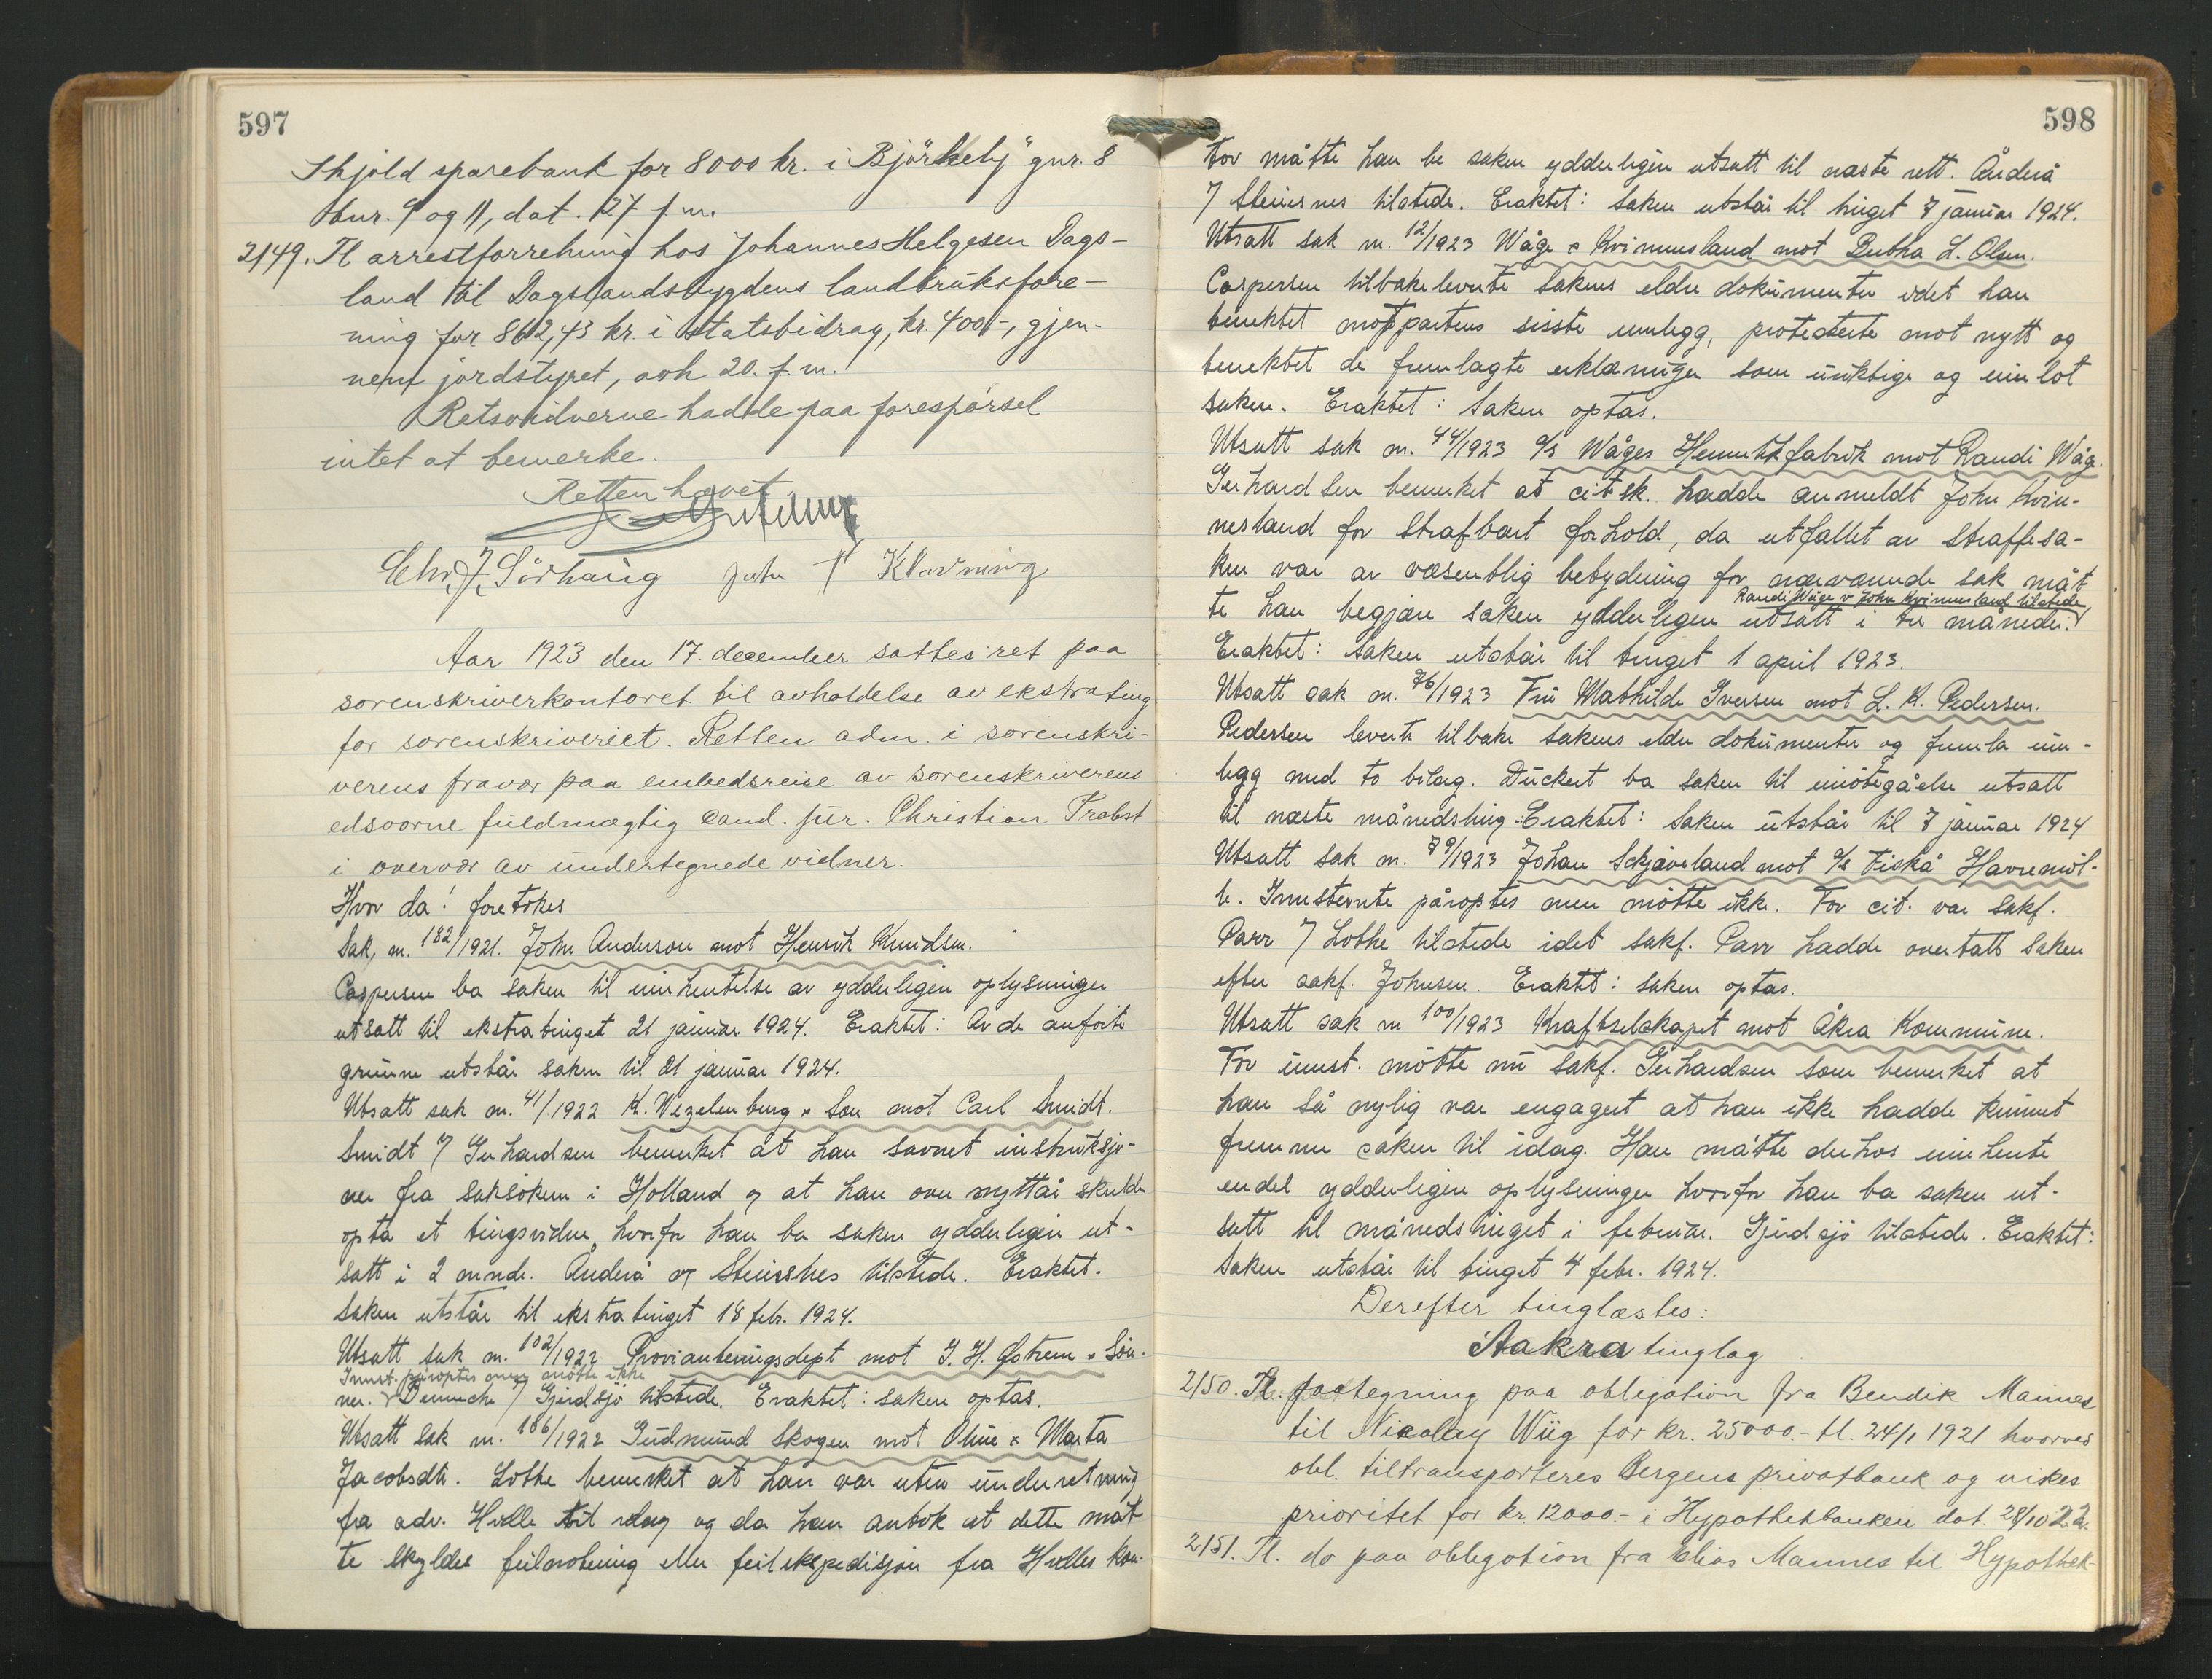 597
Skjold sparebank for 8000 kr. i "Björkely" gnr. 8
bnr. 9 og 11, dat. 27 f.m.
2149. Tl arrestforretning hos Johannes Helgesen Dags-
land til Dagslandsbygdens landbruksfore-
ning for 862,43 kr. i statsbidrag, kr. 400,-, gjen-
nem jordstyret, avh 20. f.m.
Retsvidnerne hadde paa forespörsel
intet at bemerke.
Retten hævet
Chr. J. Sörhaug John Klovning
Aar 1923 den 17. december sattes ret paa
sorenskriverkontoret til avholdelse av ekstrating
for sorenskriveriet. Retten adm. i sorenskri-
verens fravær paa embedsreise av sorenskriverens
edsvorne fuldmægtig cand. jur. Christian Probst
i overvær av undertegnede vidner.
Hvor da! foretokes
Sak, nr. 182/1921. John Anderson mot Henrik Knudsen.
Caspersen ba saken til innhentelse av ydderligere oplysninger
utsatt til ekstratinget 21 januar 1924. Eraktet: Av de anförte
grunne utstår saken til 21 januar 1924.
Utsatt sak nr. 41/1922 K. Wezelenburg & Son mot Carl Smidt.
Smidt / Gerhardsen bemerket at han savnet instruksjo-
ner fra saksökeren i Holland og at han over nyttår skulde
opta et tingsvidne, hvorfor han ba saken ydderligere ut-
satt i 2 mndr. Anderå og Steinsnes tilstede. Eraktet.
Saken utstår til ekstratinget 18 febr. 1924.
Utsatt sak nr. 102/1922 Provianteringsdept mot J. H. Østrem & Sön-
Innst. påroptes men mötte ikke
ner. Bennche / Gjerdsjö tilstede. Eraktet: saken optas.
Utsatt sak nr. 186/1922 Gudmund Skogen mot Oline & Marta
Jacobsdtr. Lothe bemerket at han var uten underretning
fra adv. Hvolle til idag og da han antok at dette måt
te skyldes feilnotering eller feilekspedisjon fra Hvolles kon-
598
tor måtte han be saken ydderligere utsatt til næste rett. Anderå
/ Steinsnes tilstede. Eraktet: Saken utstår til tinget 7 januar 1924.
Utsatt sak nr. 12/1923 Wåge & Kvinnesland mot Bertha L. Olsen.
Caspersen tilbakeleverte sakens eldre dokumenter idet han
benektet motpartens sisste innlegg, protesterte mot nytt og
benektet de fremlagte erklæringer som uriktige og innlot
saken. Eraktet: Saken optas.
Utsatt sak nr. 44/1923 a/s Wåges Hermetikfabrik mot Randi Wåge.
Gerhardsen bemerket at cit.sk. hadde anmeldt John Kvin-
nesland for strafbart forhold, da utfallet av straffesa-
ken var av væsentlig betydning for nærværende sak måt
Randi Wåge v John Kvinnesland tilstede
te han begjære saken ydderligere utsatt i tre måneder.
Eraktet: saken utstår til tinget 1 april 1923.
Utsatt sak nr. 76/1923 Fru Mathilde Iversen mot L. K. Pedersen.
Pedersen leverte tilbake sakens eldre dokumenter og fremla inn-
legg med to bilag. Duckert ba saken til imötegåelse utsatt
til næste månedsting. Eraktet: Saken utstår til 7 januar 1924
Utsatt sak nr. 79/1923 Johan Schjåveland mot a/s Fiskå Havremöl-
le. Innstevnte påroptes men mötte ikke. For cit. var sakf.
Parr / Lothe tilstede idet sakf. Parr hadde overtatt saken
efter sakf. Johnsen. Eraktet: saken optas.
Utsatt sak nr 100/1923 Kraftselskapet mot Åkra Kommune.
For innst. mötte nu sakf. Gerhardsen som bemerket at
han så nylig var engagert at han ikke hadde kunnet
fremme saken til idag. Han måtte derhos innhente
endel ydderligere oplysninger hvorfor han ba saken ut-
satt til månedstinget i februar. Gjerdsjö tilstede. Eraktet:
Saken utstår til tinget 4 febr. 1924.
Derefter tinglæstes:
Aakra tinglag
2150. Tl. paategning paa obligation fra Bendik Mannes
til Nicolay Wiig for kr. 25000.- tl. 24/1 1921 hvorved
obl. tiltransporteres Bergens privatbank og vikes
prioritet for kr. 12000.- i Hypothekbanken dat. 28/10 22.
2151. Tl. do paa obligation fra Elias Mannes til Hypothek-